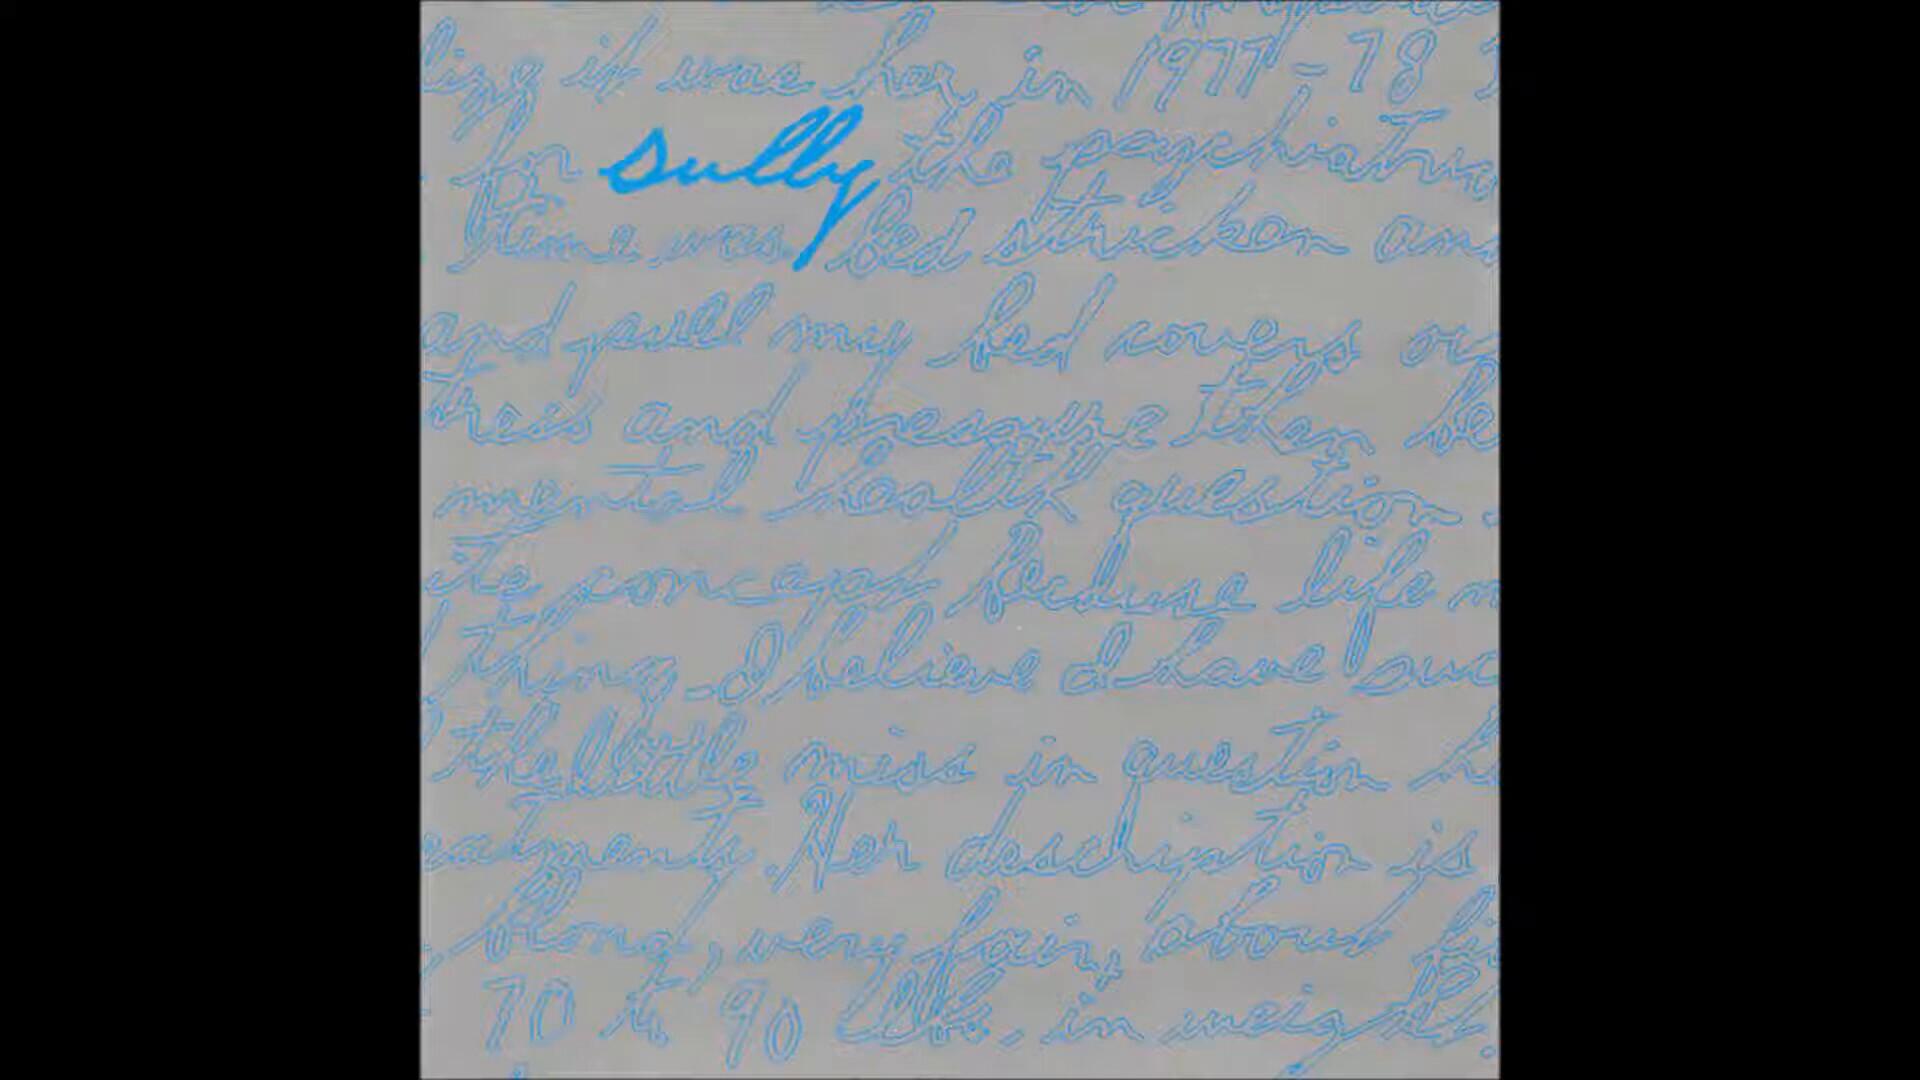 lize it was her in 1977-78
for sully the psychiatric
time was bed stricken and
and pull my bed covers or
tress and pressure then be
mental health question.
ite concept because life m
thing - I believe I have suc
the little miss in question h
eatments. Her description is
blond, very fair, about fi
70 to 90 lbs. in weight.